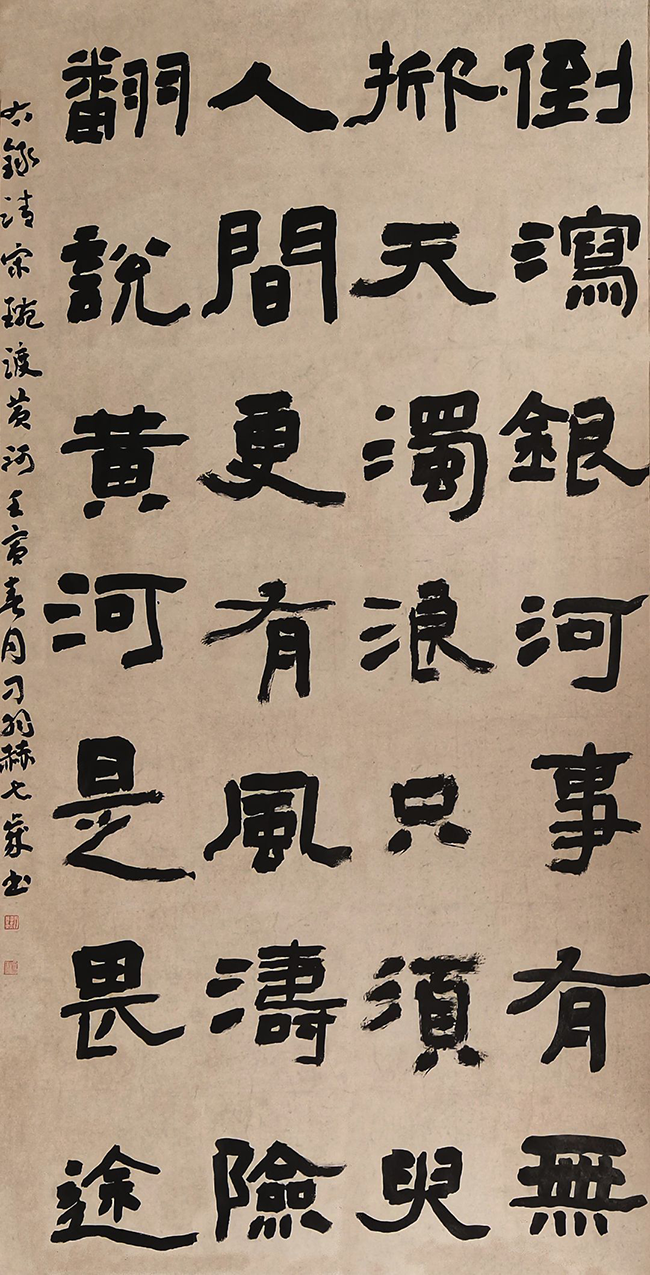 倒瀉銀河事有無
掀天濁浪只須臾
人間更有風濤險
翻說黃河是畏途
右錄清宋琬渡黃河壬寅春月刁赫七歲书